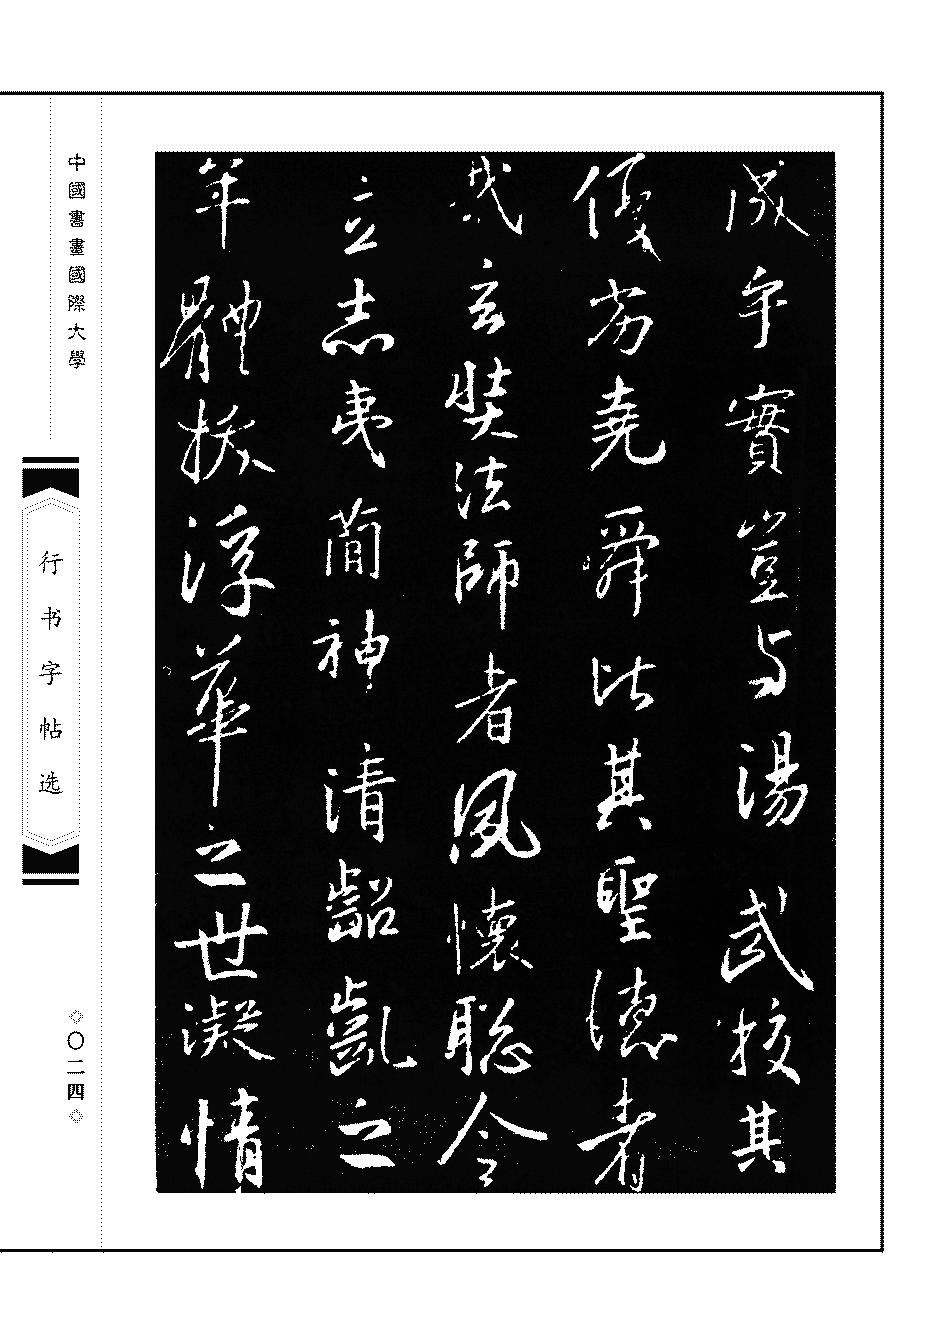 成乎實豈与湯武校其
優劣堯舜比其聖德者
哉玄奘法師者夙懷聰令
立志夷簡神清齠齔之
年體拔浮華之世凝情
中國書畫國際大學
行书字帖选
◇〇二四◇